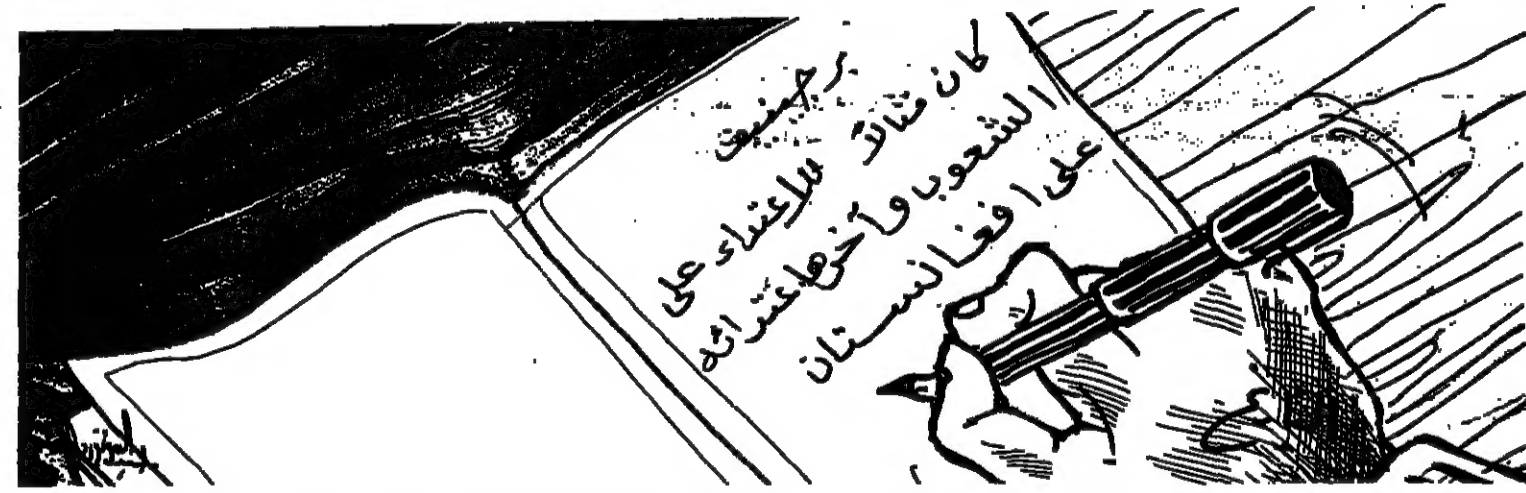 برجينيف
كان مثالاً للاعتداء على
الشعوب وآخرها اعتدائه
على افغانستان